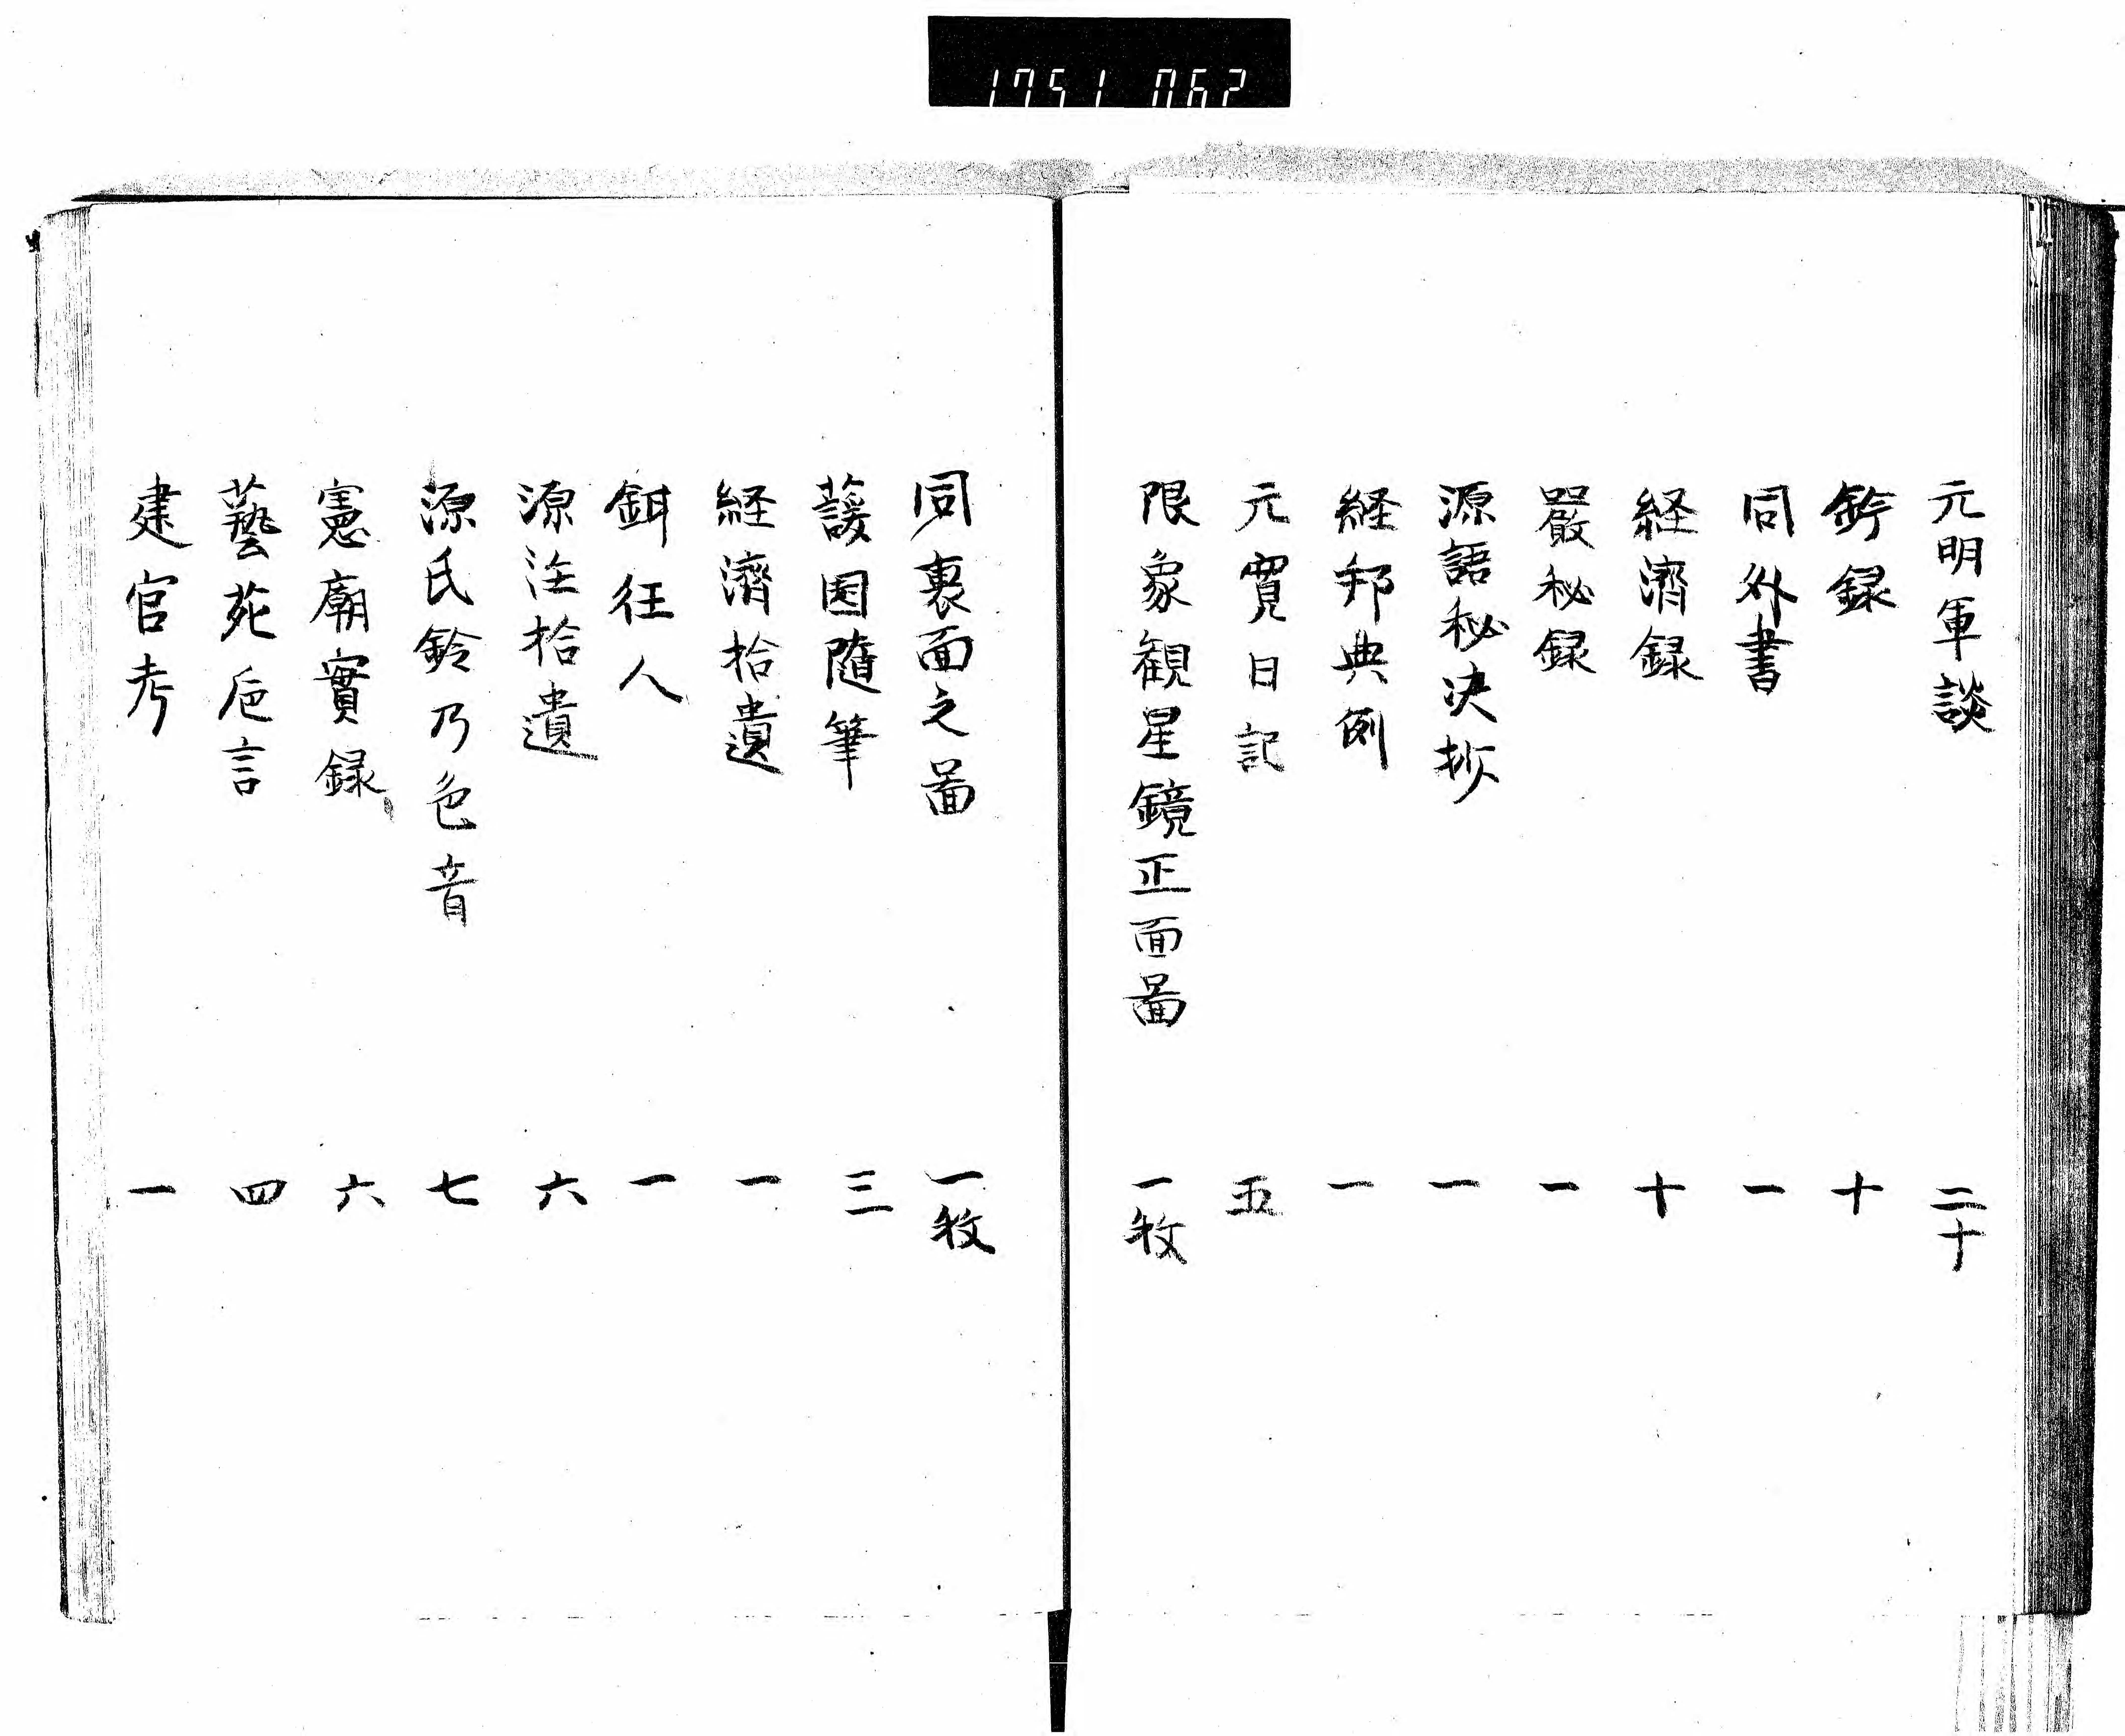 1751 062
元明軍談 二十
鈐録 十
同外書 一
経済録 十
嚴秘録 一
源語秘決抄 一
経邦典例 一
元寛日記 五
限象観星鏡正面啚 一枚
同裏面之啚 一枚
蘐園随筆 三
経濟拾遺 一
鉺狂人 一
源注拾遺 六
源氏鈴乃色音 七
憲廟實録 六
藝苑卮言 四
建官考 一